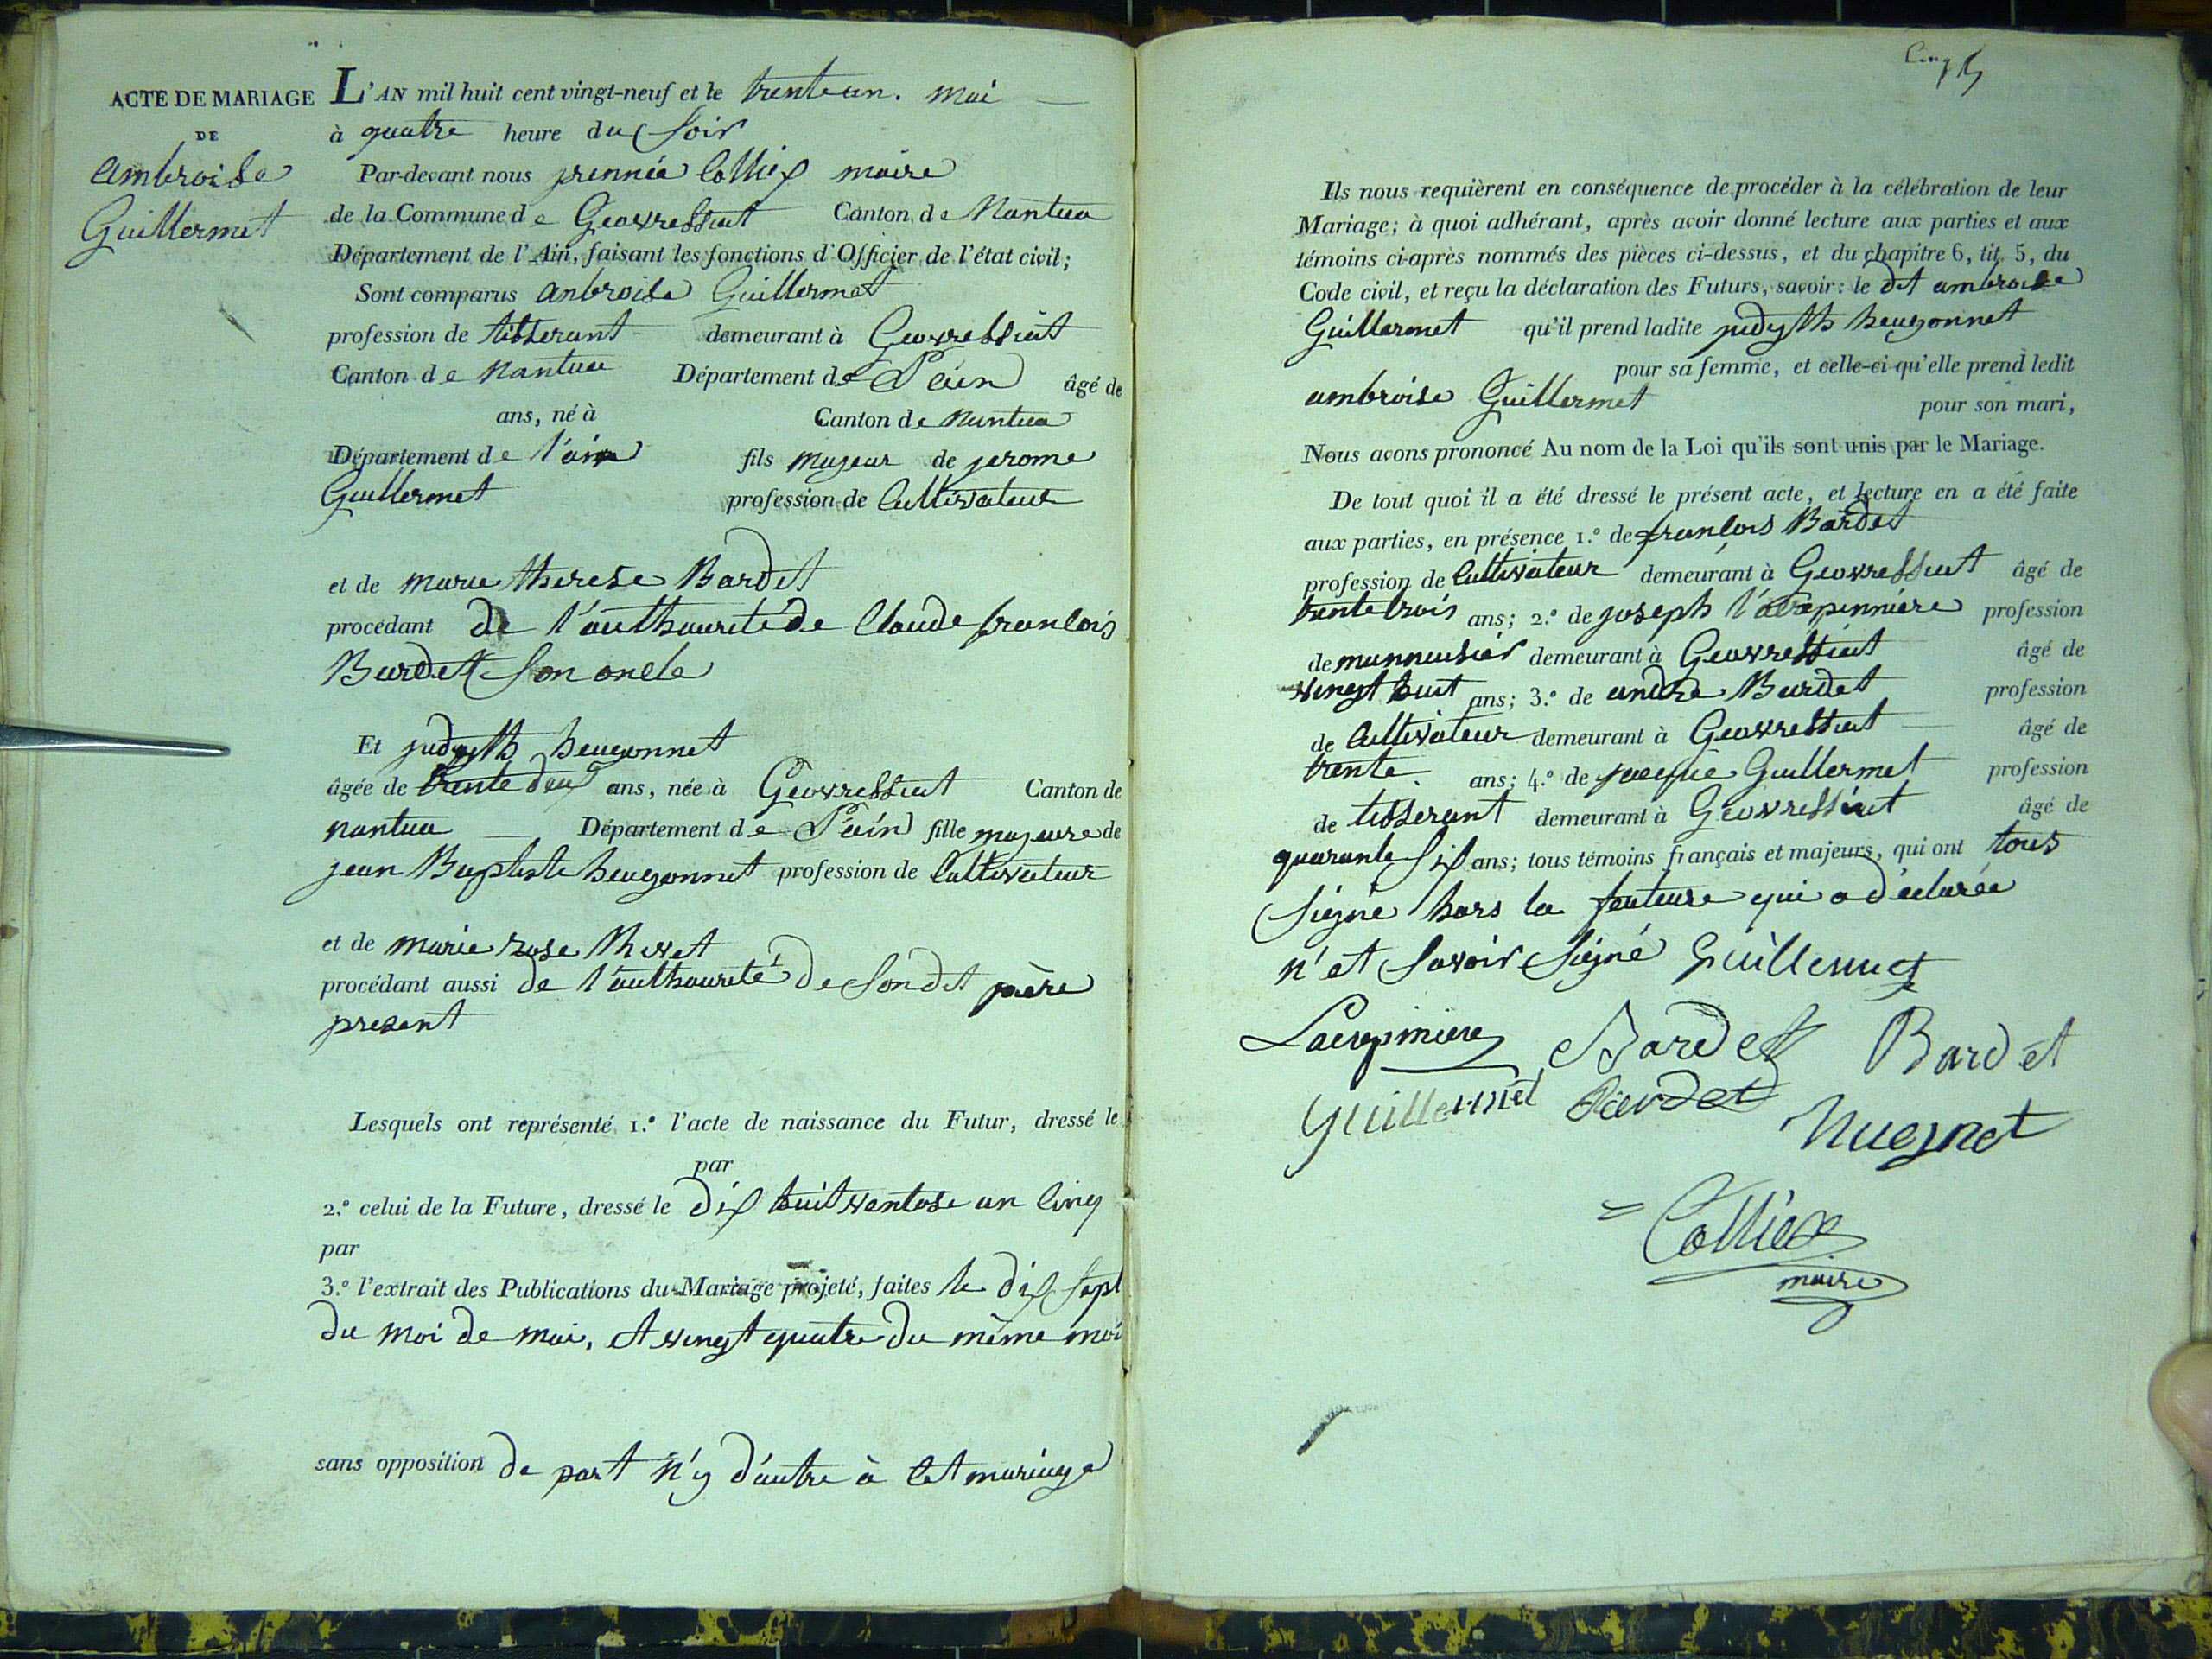 ACTE DE MARIAGE
DE
ambroise
Guillermet
L'AN mil huit cent vingt-neuf et le trente un. mai
à quatre heure du Soir
Par-devant nous Collies maire
de la Commune de Geovressiat Canton de Nantua
Département de l'Ain, faisant les fonctions d'Officier de l'état civil;
Sont comparus anbroise Guillermet
profession de tisserant demeurant à Geovressiat
Canton de Nantua Département de l'ain âgé de
ans, né à Canton de Nantua
Département de l'ain fils majeur de jerome
Guillermet profession de Cultivateur
et de marie therese Bardet
procédant de l'authourité de Claude francois
Bardet Son oncle
Et judyth heugonnet
âgée de trente deux ans, née à Geovressiat Canton de
nantua Département de l'ain fille majeure de
jean Baptiste heugonnet profession de Cultivateur
et de marie rose
procédant aussi de l'authourité de Son dit père
present
Lesquels ont représenté 1.° l'acte de naissance du Futur, dressé le
par
2.° celui de la Future, dressé le dix huit ventose an Cinq
par
3.° l'extrait des Publications du Mariage projeté, faites le dix Sept
du moi de mai, et vingt quatre du même moi
sans opposition de part n'y d'autre à Cet mariage
Cinq 5
Ils nous requièrent en conséquence de procéder à la célébration de leur
Mariage; à quoi adhérant, après avoir donné lecture aux parties et aux
témoins ci-après nommés des pièces ci-dessus, et du chapitre 6, tit. 5, du
Code civil, et reçu la déclaration des Futurs, savoir: le dit ambroise
Guillermet qu'il prend ladite judyth heugonnet
pour sa femme, et celle-ci qu'elle prend ledit
ambroise Guillermet pour son mari,
Nous avons prononcé Au nom de la Loi qu'ils sont unis par le Mariage.
De tout quoi il a été dressé le présent acte, et lecture en a été faite
aux parties, en présence 1.° de francois Bardet
profession de Cultivateur demeurant à Geovressiat âgé de
trente trois ans; 2.° de joseph profession
de mennusier demeurant à Geovressiat âgé de
vingt huit ans; 3.° de andre Bardet profession
de Cultivateur demeurant à Geovressiat âgé de
trente ans; 4.° de jacque Guillermet profession
de tisserant demeurant à Geovressiat âgé de
quarante Six ans; tous témoins français et majeurs, qui ont tous
Signé hors la feuteure qui a déclarée
n'et Savoir Signé Guillermet
Bardet Bardet
Guillermet Bardet
Collies
maire